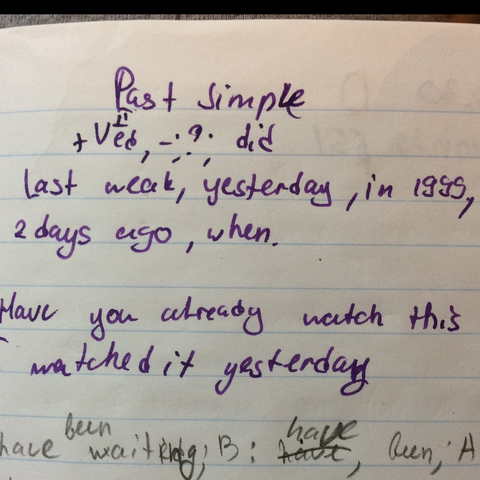 Past simple
+ Ved, -; ?; did
II
Last weak, yesterday, in 1999,
2 days ago, when.
Have you already watch this
I watched it yesterday
been
have
have waiting; B: have, been; A